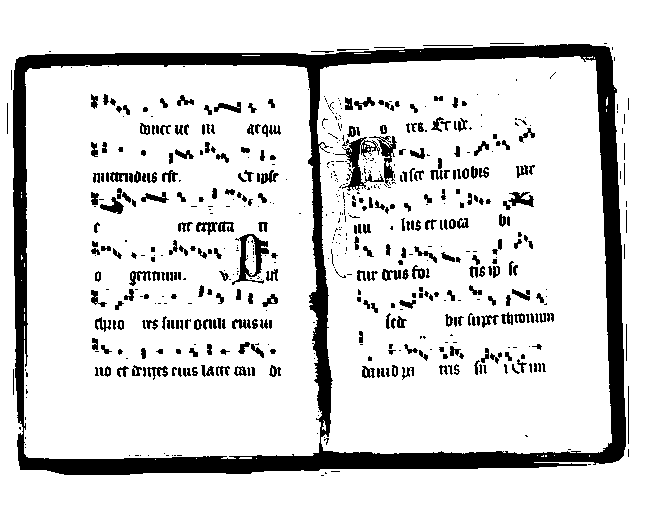 donec ue ni at qui
mittendus est. Et ipse
e rit expecta ti
o gentium. v. Pul
chrio res sunt oculi eius ui
no et dentes eius lacte can di
di o res. Et ip̄e.
ascetur nobis par
uu lus et uoca bi
tur deus for tis ip se
sede bit super thronum
dauid pa tris su i Et im